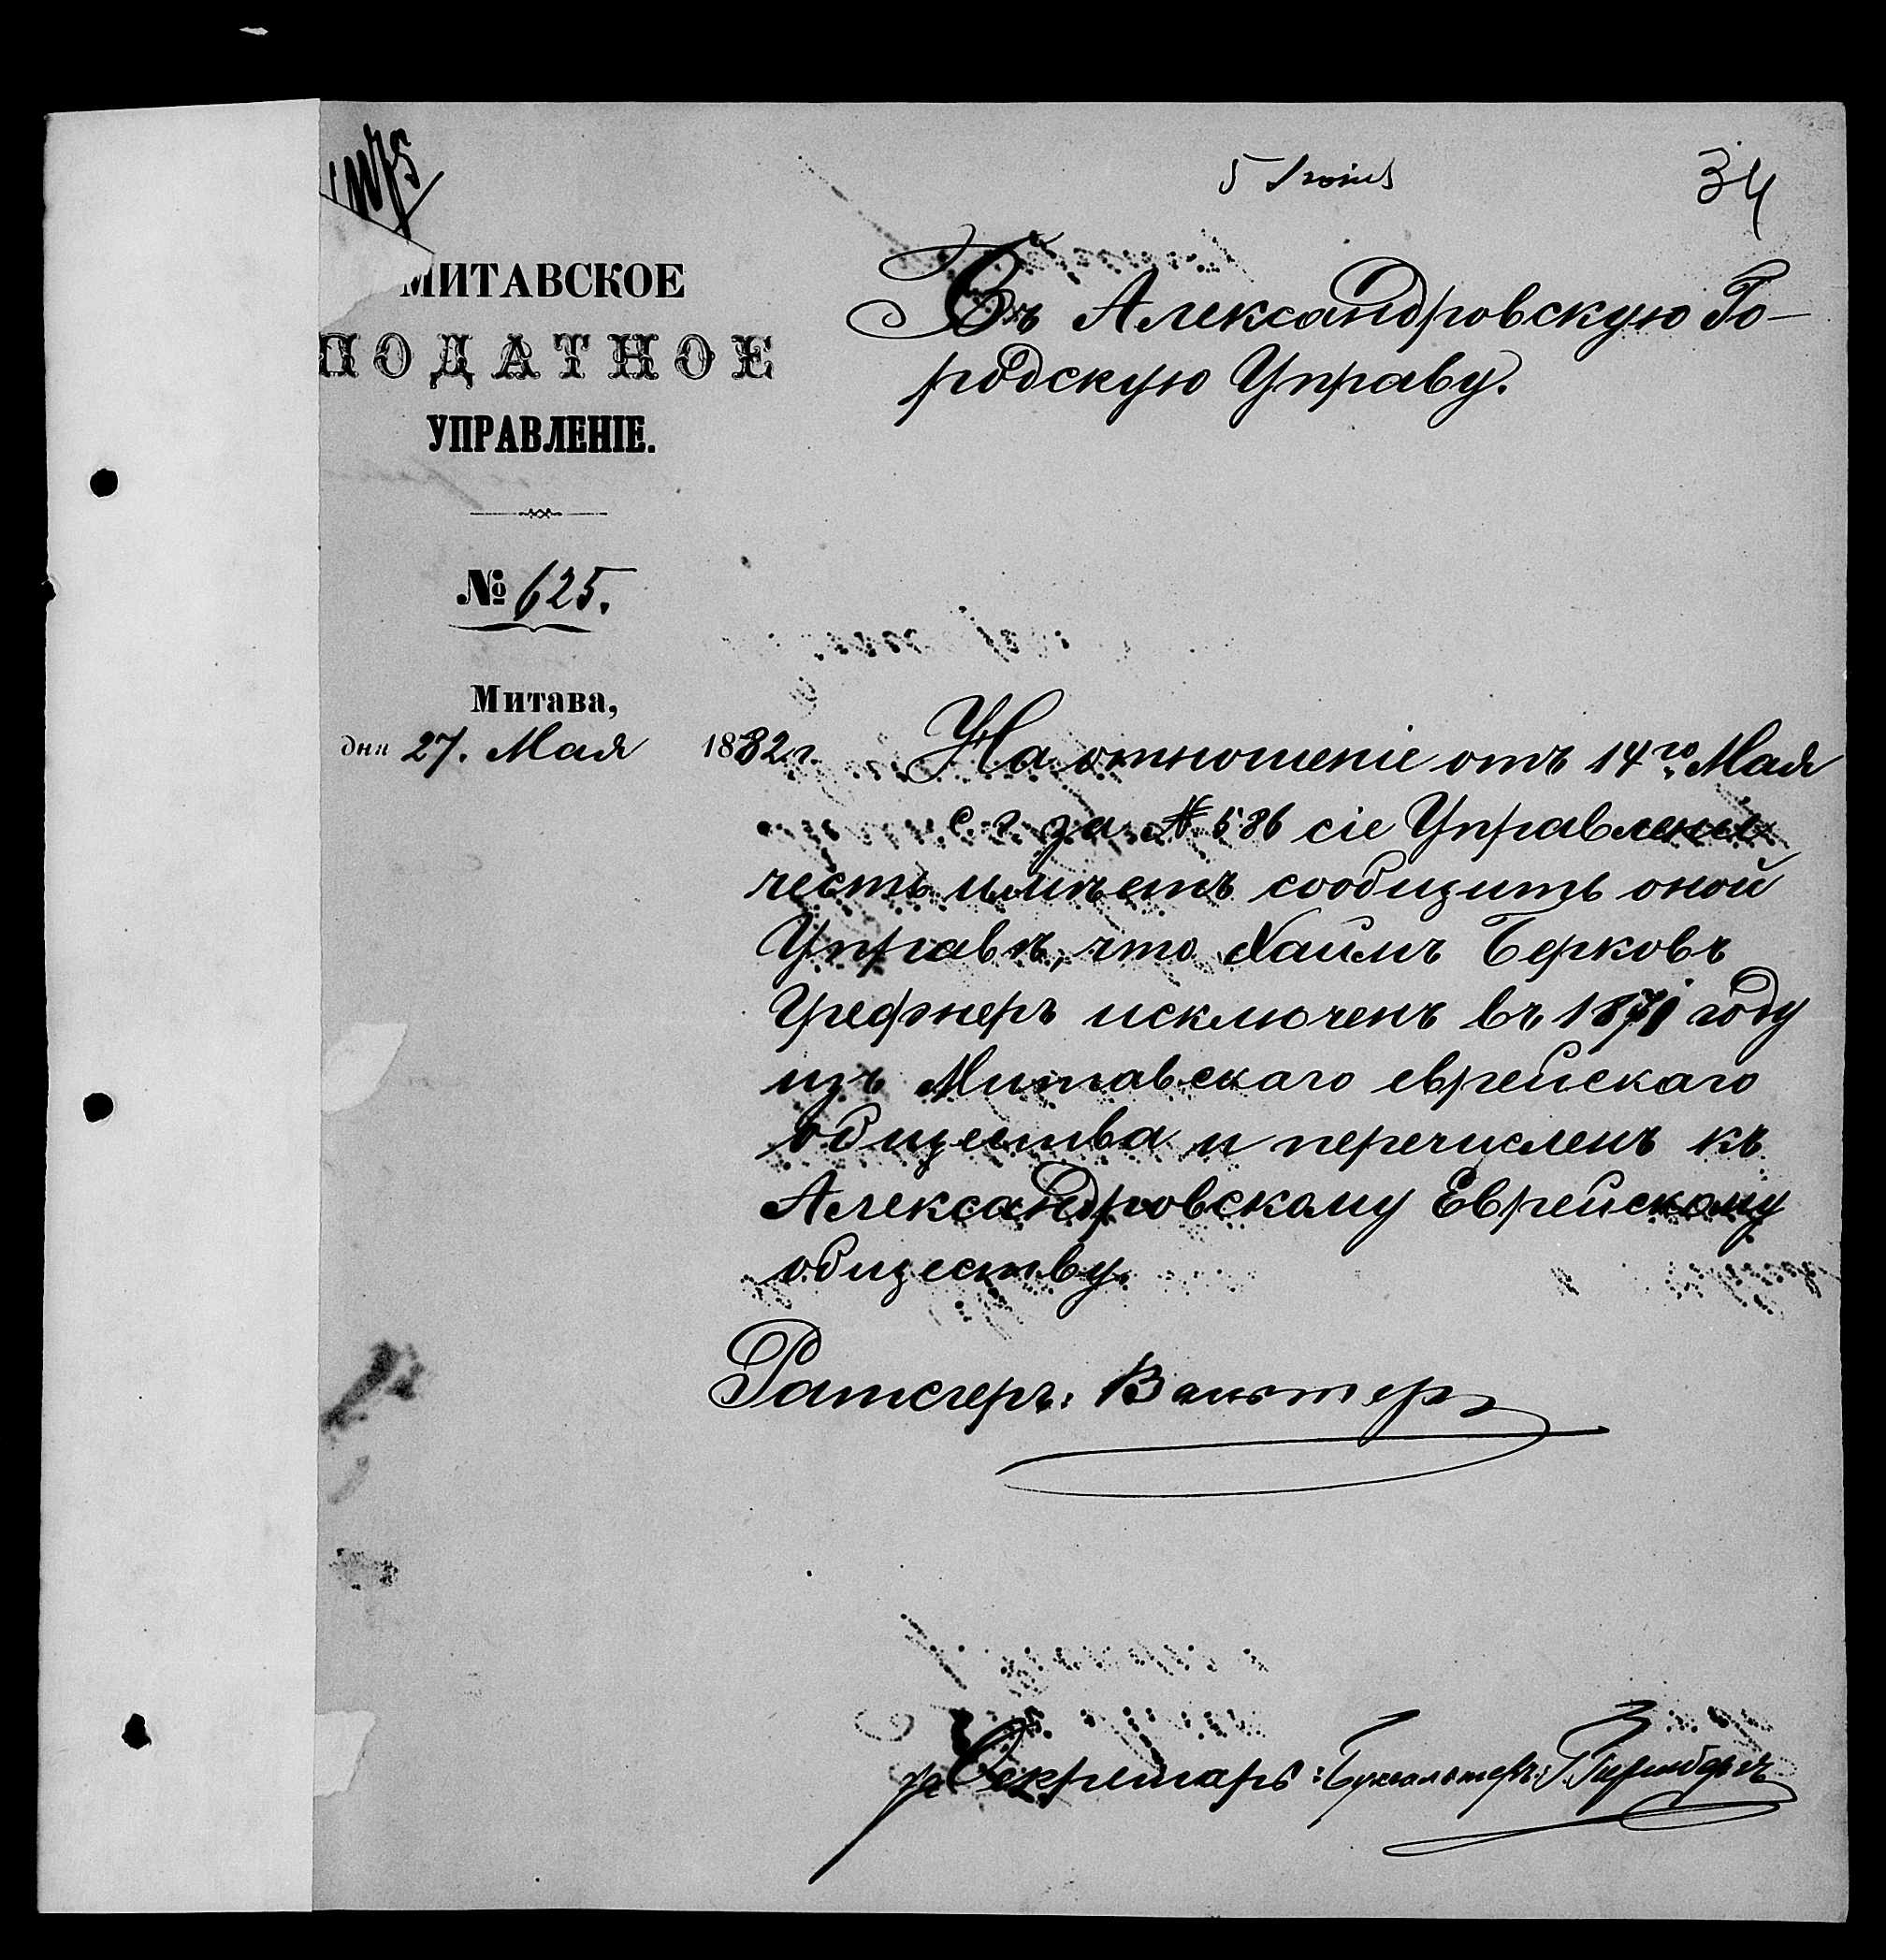 5 Іюня
34
МИТАВСКОЕ
ПОДАТНОЕ
УПРАВЛЕНІЕ.
№ 625.
Митава,
дня 27. Мая 1882 г.
Въ Александровскую Го-
родскую Управу.
На отношеніе отъ 14го Мая
с. г. за № 586 сіе Управленіе
честь имѣетъ сообщить оной
Управѣ, что Хаимъ Берковъ
исключенъ въ 1871 году
изъ Митавскаго еврейскаго
общества и перечисленъ къ
Александровскому Еврейскому
обществу.
Ратсгеръ:
Секретарь: Бухгалтеръ: